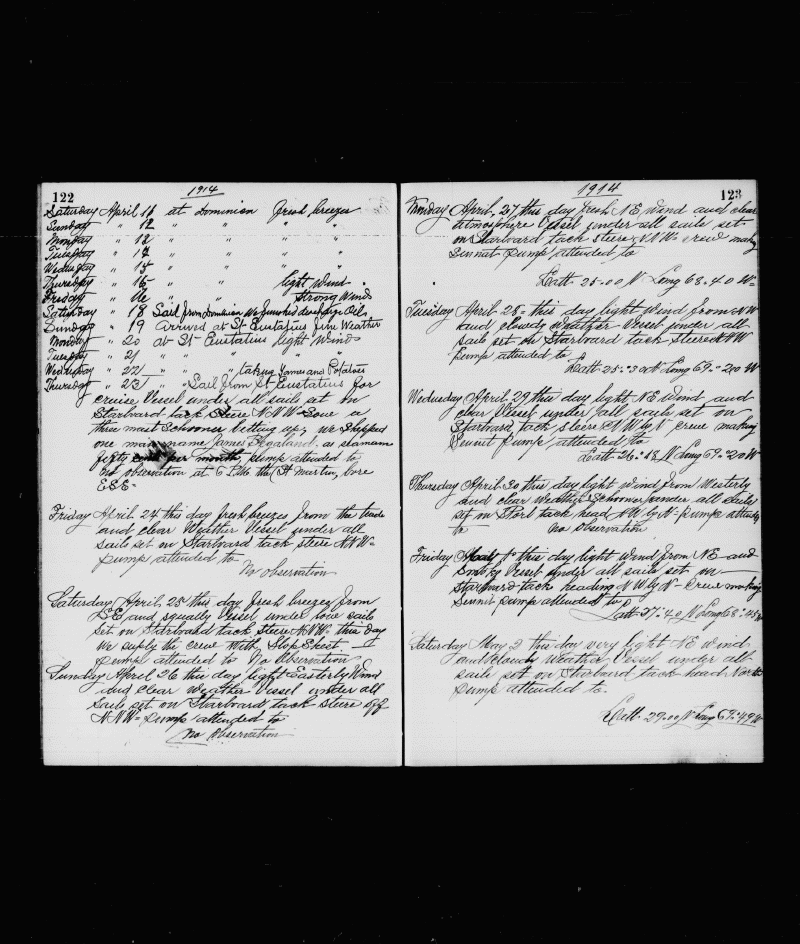 122
1914
Saturday April 11 at Dominion fresh breezes
Sunday " 12 " " "
Monday " 13 " " "
Tuesday " 14 " " "
Wednesday " 15 " "
Thursday " 15 " " light Wind
Friday " " " Strong Winds
Saturday " 18 Sail from Dominion We finished Oil
Sunday " 19 Arrived at St Eustatius fine Weather
Monday " 20 at St Eustatius light Winds
Tuesday " 21 " " "
Wednesday " 22 " " taking and Potatoes
Thursday " 23 " " Sail from St Eustatius for
cruise Vessel under all sails set on
Starboard tack Steere NNW a
three mast Schooner up; we Shipped
one man name James as seaman
fifty pump attended to
no observation at 6 PM the St Martin, bore
ESE
Friday April 24 this day fresh breezes from the
and clear Weather Vessel under all
sails set on Starboard tack steere NNW
pump attended to
No observation
Saturday April 25 this day fresh breezes from
and squally Vessel under sails
set on Starboard tack Steere NNW this day
We supply the crew With Slop Chest.
pump attended to No Observation
Sunday April 26 this day light Easterly Wind
and Clear Weather Vessel under all
sails set on Starboard tack steere off
NNW pump attended to
No Observation
123
1914
Monday April, 27 this day fresh NE Wind and clear
atmosphere Vessel under all sails set
on Starboard tack steere NNW crew making
Sennit pump attended to
Latt 25.00 N Long 68.40 W
Tuesday April 28 this day light Wind from
and cloudy Weather Vessel under all
sails set on Starboard tack Steere NNW
pump attended to
Latt 25:30 N Long 69:20 W
Wednesday April 29 this day light NE Wind and
clear Vessel under all sails set on
Starboard tack steere NW by N crew making
Sennit pump attended to
Latt 26:18 N Long 69:20 W
Thursday April 30 this day light wind from Westerly
and clear Weather Schooner under all Sails
set on Port tack head NW by N pump attended
to No observation
Friday this day light Wind from NE and
Smoky Vessel under all sails set on
Starboard tack heading NW by N Crew making
Sennit pump attended to
Latt 27:40 N Long 68:45 W
Saturday May 2 this day very light NE Wind
and cloudy Weather Vessel under all
sails set on Starboard tack head North
pump attended to.
Latt 29:00 N Long 69:49 W